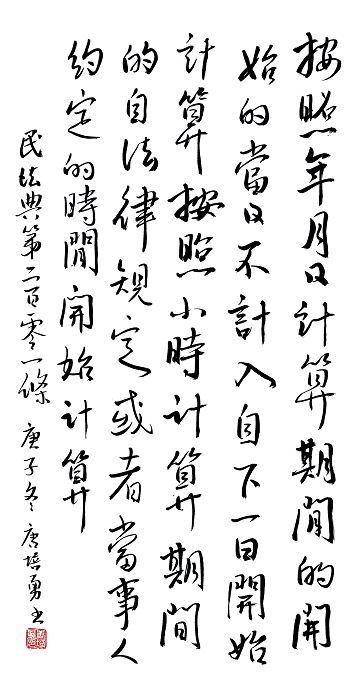 按照年月日計算期間的開
始的當日不計入自下一日開始
計算按照小時計算期間
的自法律規定或者當事人
約定的時間開始計算
民法典第二百零一條 庚子冬 唐培勇書